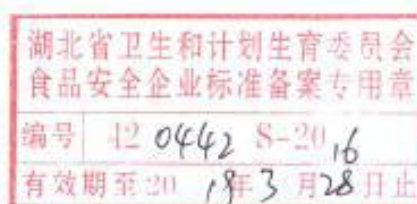 湖北省卫生和计划生育委员会
食品安全企业标准备案专用章
编号 42 0442 S-2016
有效期至2019年3月28日止